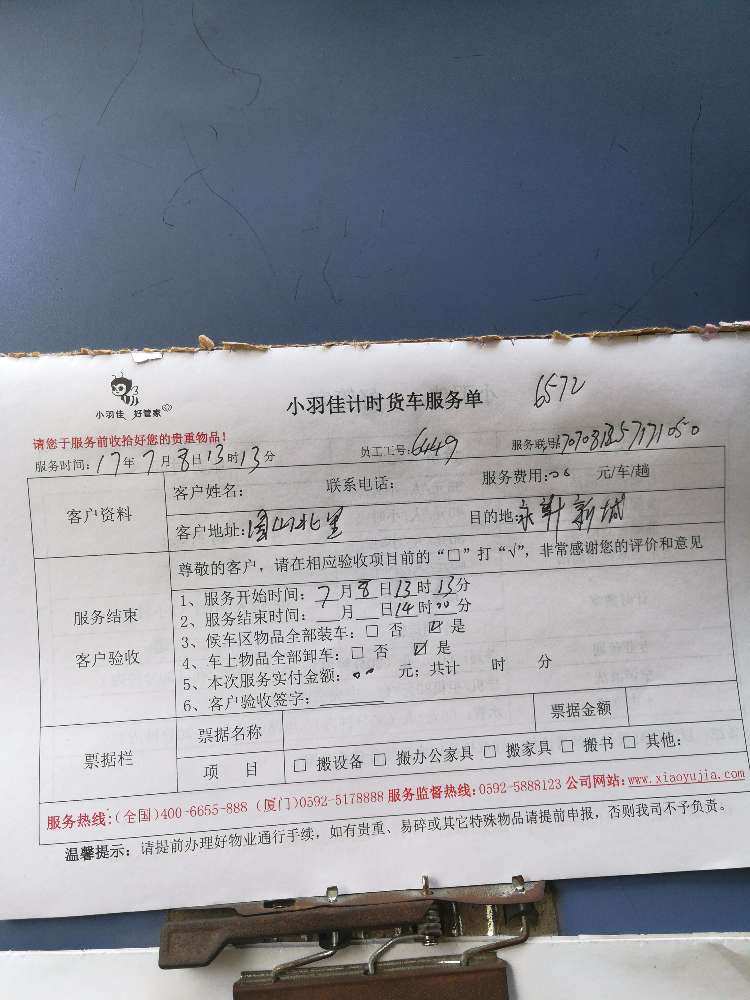 小羽佳 好管家
小羽佳计时货车服务单 6572
请您于服务前收拾好您的贵重物品！
服务时间：17年7月8日13时13分 员工工号：6449 服务联号：
客户资料
客户姓名： 联系电话： 服务费用： 元/车/趟
客户地址： 山北里 目的地： 新城
服务结束
客户验收
尊敬的客户，请在相应验收项目前的“□”打“√”，非常感谢您的评价和意见
1、服务开始时间：7月8日13时13分
2、服务结束时间：__月__日14时00分
3、候车区物品全部装车：□ 否 ☑ 是
4、车上物品全部卸车：□ 否 ☑ 是
5、本次服务实付金额： 元；共计 时 分
6、客户验收签字：
票据栏
票据名称 票据金额
项 目 □ 搬设备 □ 搬办公家具 □ 搬家具 □ 搬书 □ 其他：
服务热线：(全国)400-6655-888 (厦门)0592-5178888 服务监督热线：0592-5888123 公司网站：www.xiaoyujia.com
温馨提示：请提前办理好物业通行手续，如有贵重、易碎或其它特殊物品请提前申报，否则我司不予负责。